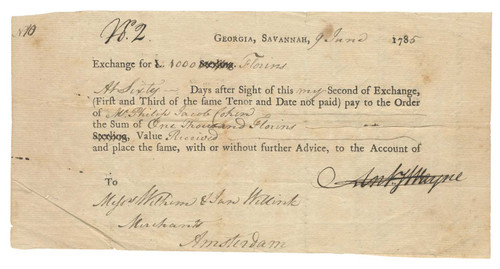 No. 2.
GEORGIA, SAVANNAH, 9 June 1785
Exchange for £. 1000 Sterling Florins
At Sixty Days after Sight of this my Second of Exchange,
(First and Third of the same Tenor and Date not paid) pay to the Order
of Mr Philip Jacob Cohen
the Sum of One Thousand Florins
Sterling, Value Received
and place the same, with or without further Advice, to the Account of
Anty Wayne
To
Messrs Wilhem & Jan Willink
Merchants
Amsterdam